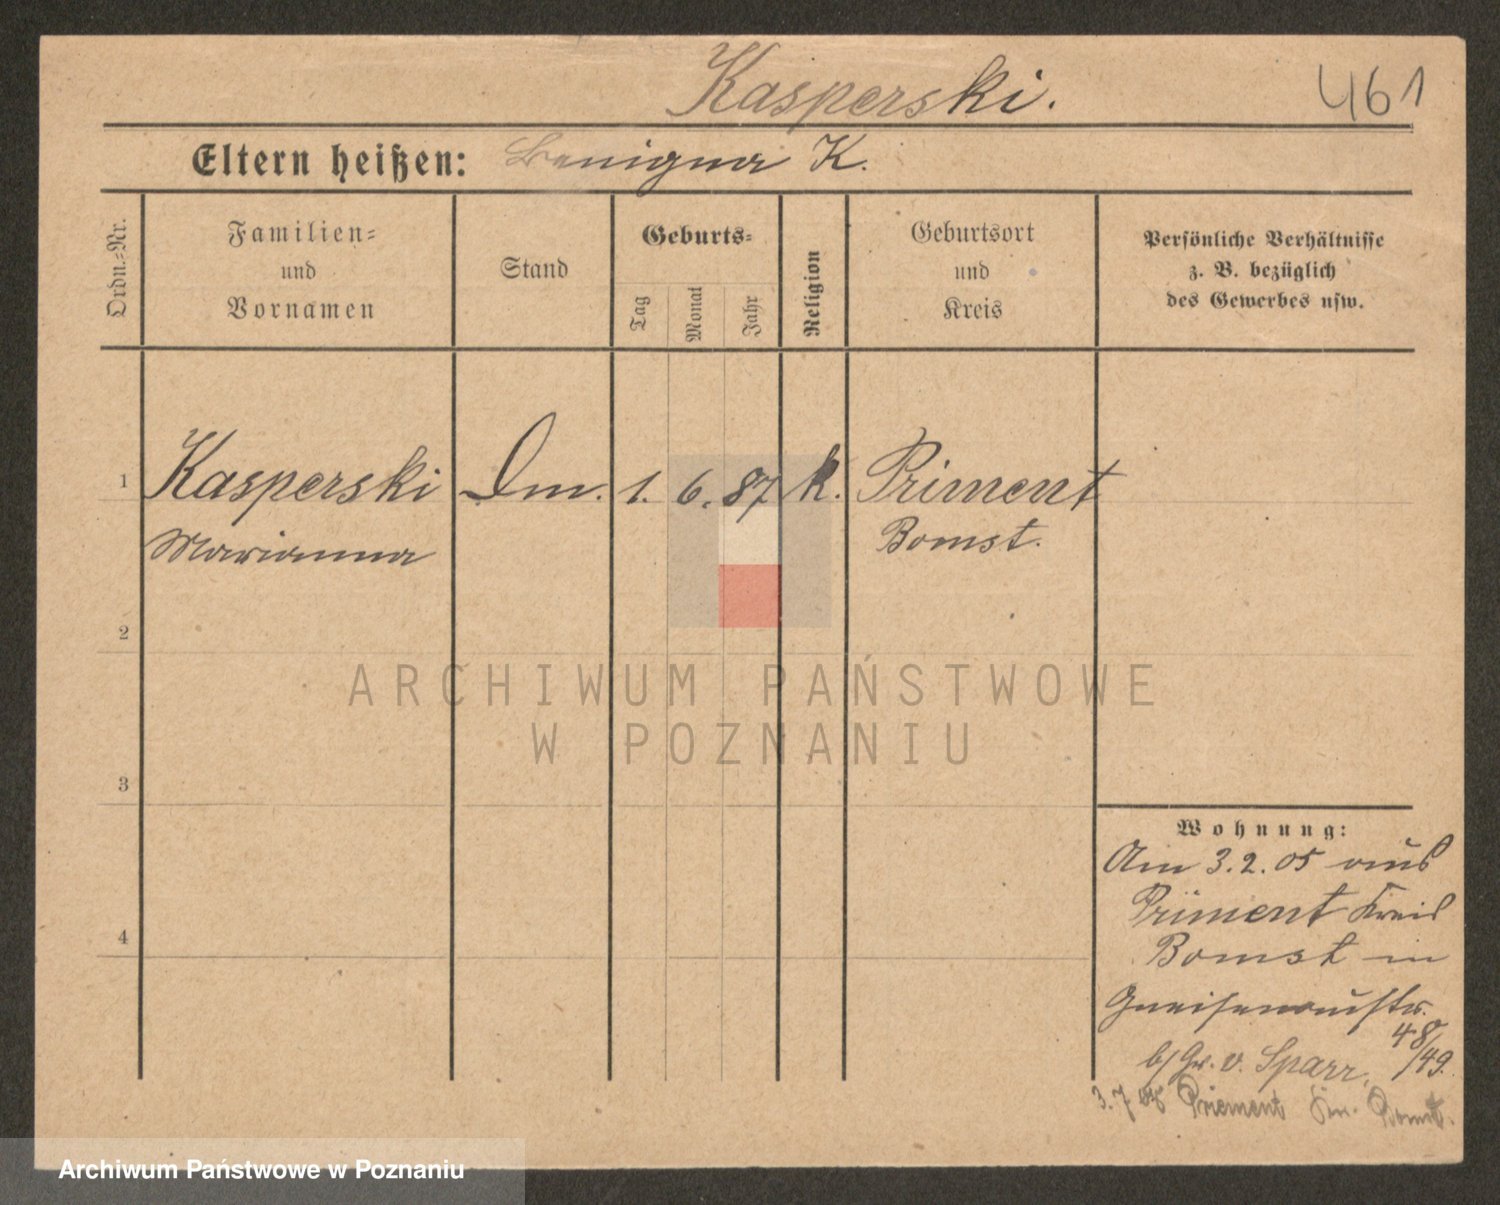 Kasperski.
461
Eltern heißen: Benigna K.
Ordn.-Nr.
Familien-
und
Vornamen
Stand
Geburts-
Tag
Monat
Jahr
Religion
Geburtsort
und
Kreis
Persönliche Verhältnisse
z. B. bezüglich
des Gewerbes usw.
1 Kasperski Dm. 1. 6. 87 k. Priment
Marianna Bomst.
2
3
4
Wohnung:
Am 3.2.05 aus
Priment Kreis
Bomst in
Gneisenaustr.
48/49.
b/ Gr. v. Sparr,
3.7. Priement Kr. Bomst.
ARCHIWUM PAŃSTWOWE
W POZNANIU
Archiwum Państwowe w Poznaniu